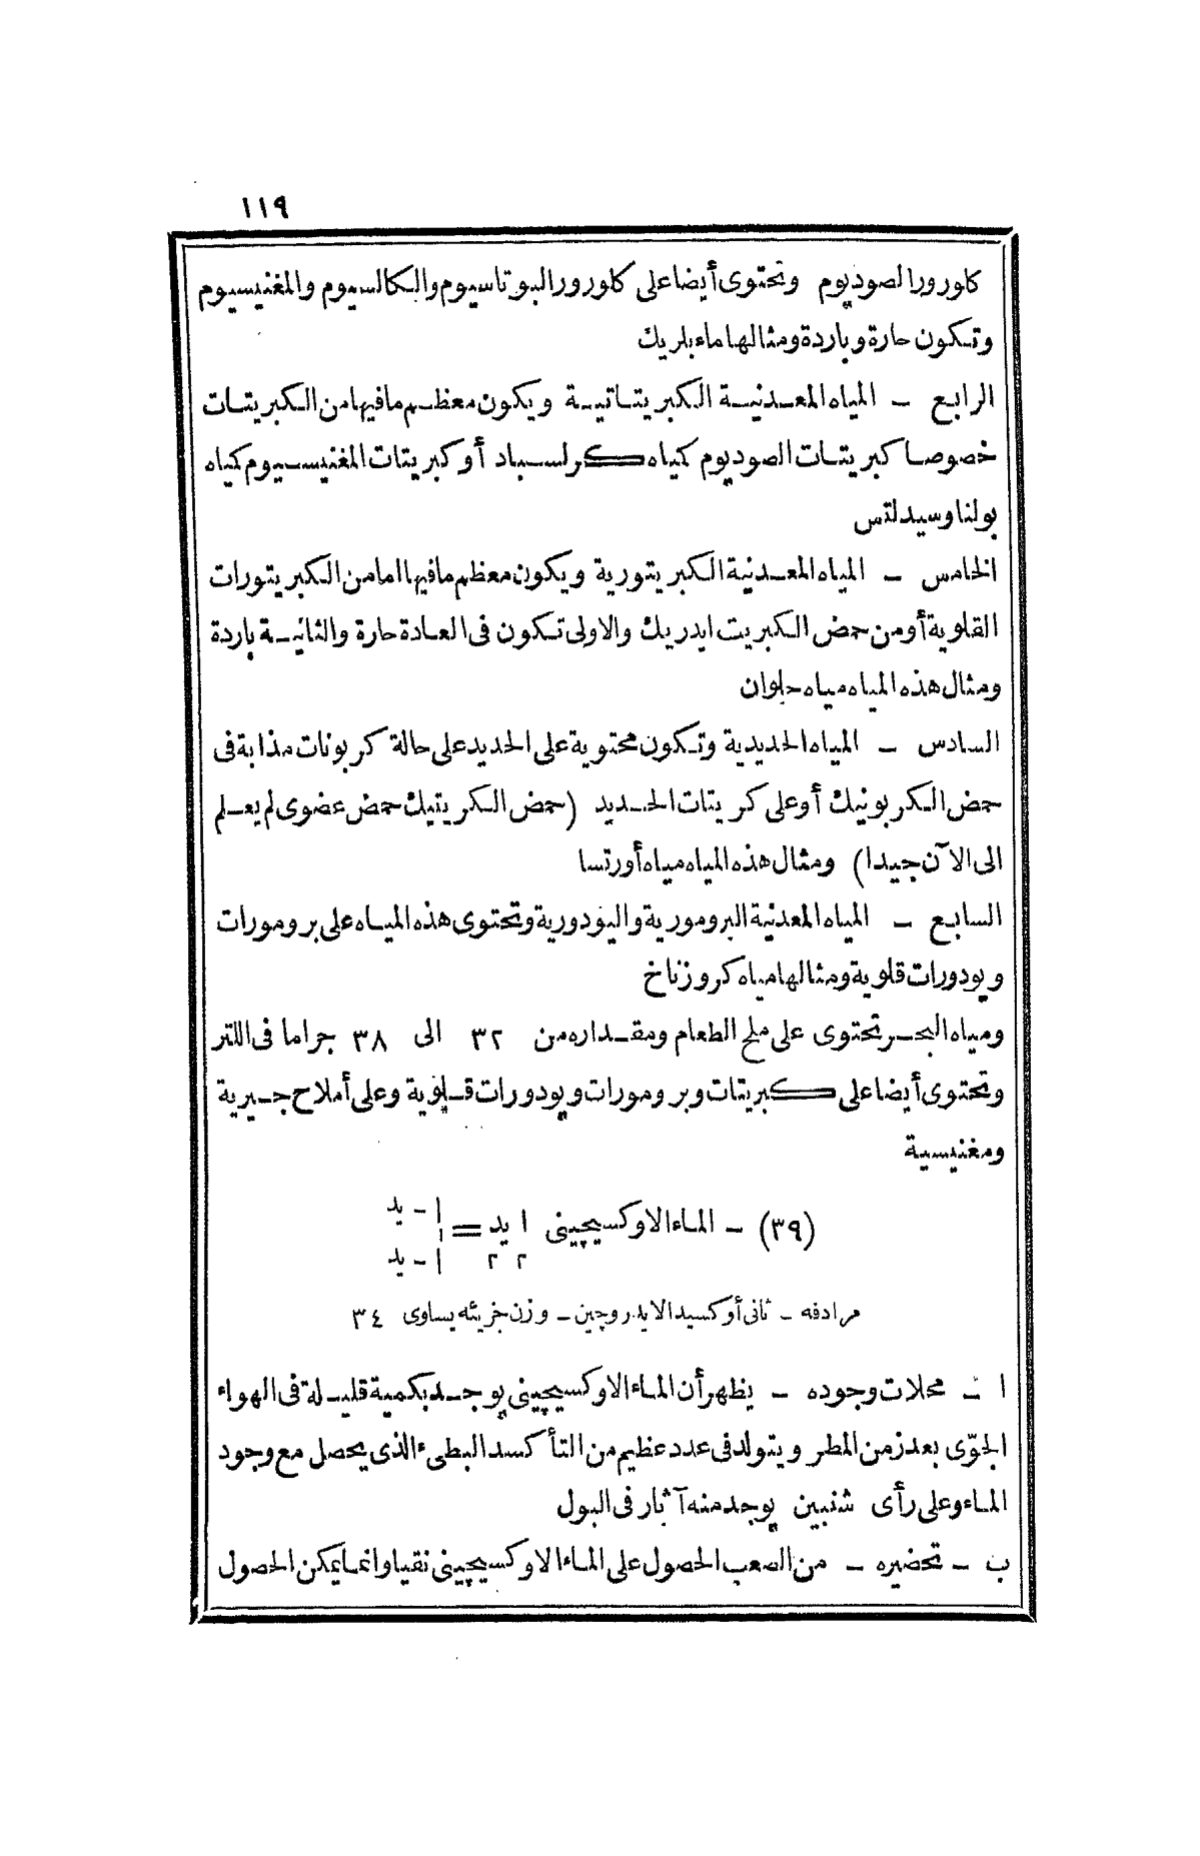 ١١٩
كلورور الصوديوم وتحتوى أيضا على كلورور البوتاسيوم والكالسيوم والمغنيسيوم
وتكون حارة وباردة ومثالها ماء بلريك
الرابع ـ المياه المعدنية الكبريتاتية ويكون معظم مافيها من الكبريتات
خصوصا كبريتات الصوديوم كمياه كرلسباد أو كبريتات المغنيسيوم كمياه
بولنا وسيدلتس
الخامس ـ المياه المعدنية الكبريتورية ويكون معظم مافيها اما من الكبريتورات
القلوية أو من حمض الكبريت ايدريك والاولى تكون فى العادة حارة والثانية باردة
ومثال هذه المياه مياه حلوان
السادس ـ المياه الحديدية وتكون محتوية على الحديد على حالة كربونات مذابة فى
حمض الكربونيك أو على كريتات الحديد (حمض الكريتيك حمض عضوى لم يعلم
الى الآن جيدا) ومثال هذه المياه مياه أورتسا
السابع ـ المياه المعدنية البرومورية واليودورية وتحتوى هذه المياه على برومورات
ويودورات قلوية ومثالها مياه كروزناخ
ومياه البحر تحتوى على ملح الطعام ومقداره من ٣٢ الى ٣٨ جراما فى اللتر
وتحتوى أيضا على كبريتات وبرومورات ويودورات قلوية وعلى أملاح جيرية
ومغنيسية
(٣٩) ـ الماء الاوكسيچينى ا٢ يد٢ = ا - يد
ا
ا - يد
مرادفه ـ ثانى أوكسيد الايدروچين ـ وزن جزيئه يساوى ٣٤
ا ـ محلات وجوده ـ يظهر أن الماء الاوكسيچينى يوجد بكمية قليلة فى الهواء
الجوّى بعد زمن المطر ويتولد فى عدد عظيم من التأكسد البطىء الذى يحصل مع وجود
الماء وعلى رأى شنبين يوجد منه آثار فى البول
ب ـ تحضيره ـ من الصعب الحصول على الماء الاوكسيچينى نقيا وانما يمكن الحصول